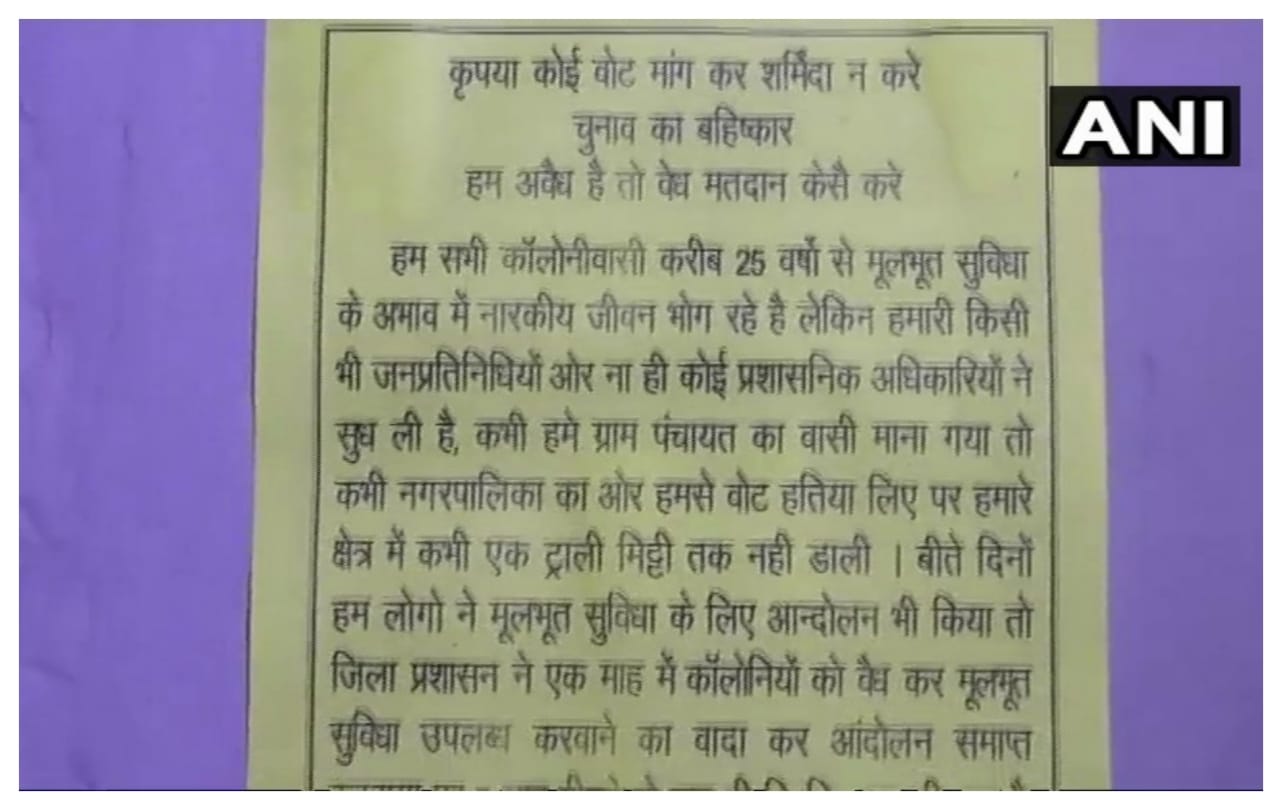 कृपया कोई वोट मांग कर शर्मिंदा न करे
ANI
चुनाव का बहिष्कार
हम अवैध है तो वेध मतदान केसै करे
हम सभी कॉलोनीवासी करीब 25 वर्षो से मूलभूत सुविधा
के अभाव में नारकीय जीवन भोग रहे है लेकिन हमारी किसी
भी जनप्रतिनिधियों ओर ना ही कोई प्रशासनिक अधिकारियों ने
सुध ली है, कभी हमे ग्राम पंचायत का वासी माना गया तो
कभी नगरपालिका का ओर हमसे वोट हतिया लिए पर हमारे
क्षेत्र में कभी एक ट्राली मिट्टी तक नही डाली । बीते दिनों
हम लोगो ने मूलभूत सुविधा के लिए आन्दोलन भी किया तो
जिला प्रशासन ने एक माह में कॉलोनियों को वैध कर मूलभूत
सुविधा उपलब्ध करवाने का वादा कर आंदोलन समाप्त